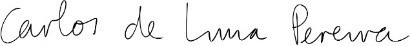 Carlos de Luna Pereira